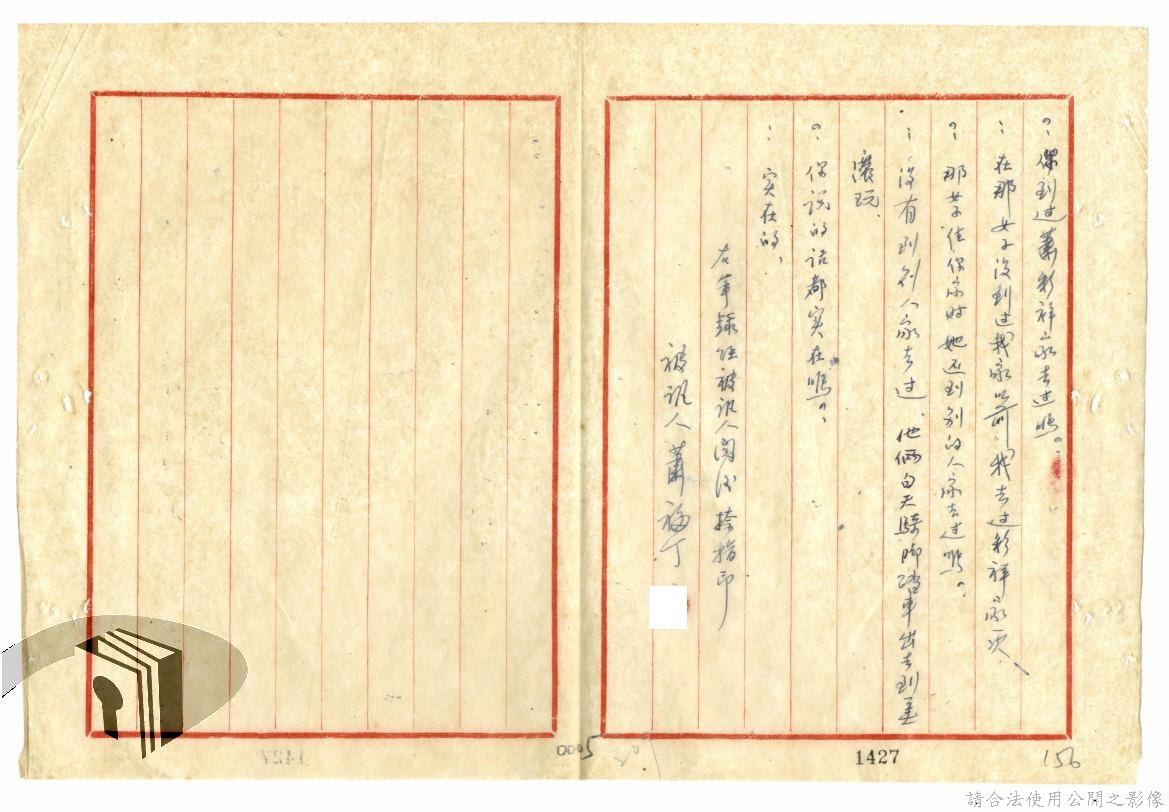 ?:你到过蕭彩祥家去过嗎?:
:在那女子沒到过我家以前,我去过彩祥家一次、
?:那女子住你家时她还到别的人家去过嗎?:
:沒有到别人家去过、他倆白天騎脚踏車出去到
玩、
?:你說的話都实在嗎?:
:实在的、
右筆錄經被訊人閱後捺指印
被訊人蕭福丁
0005
1427
156
請合法使用公開之影像